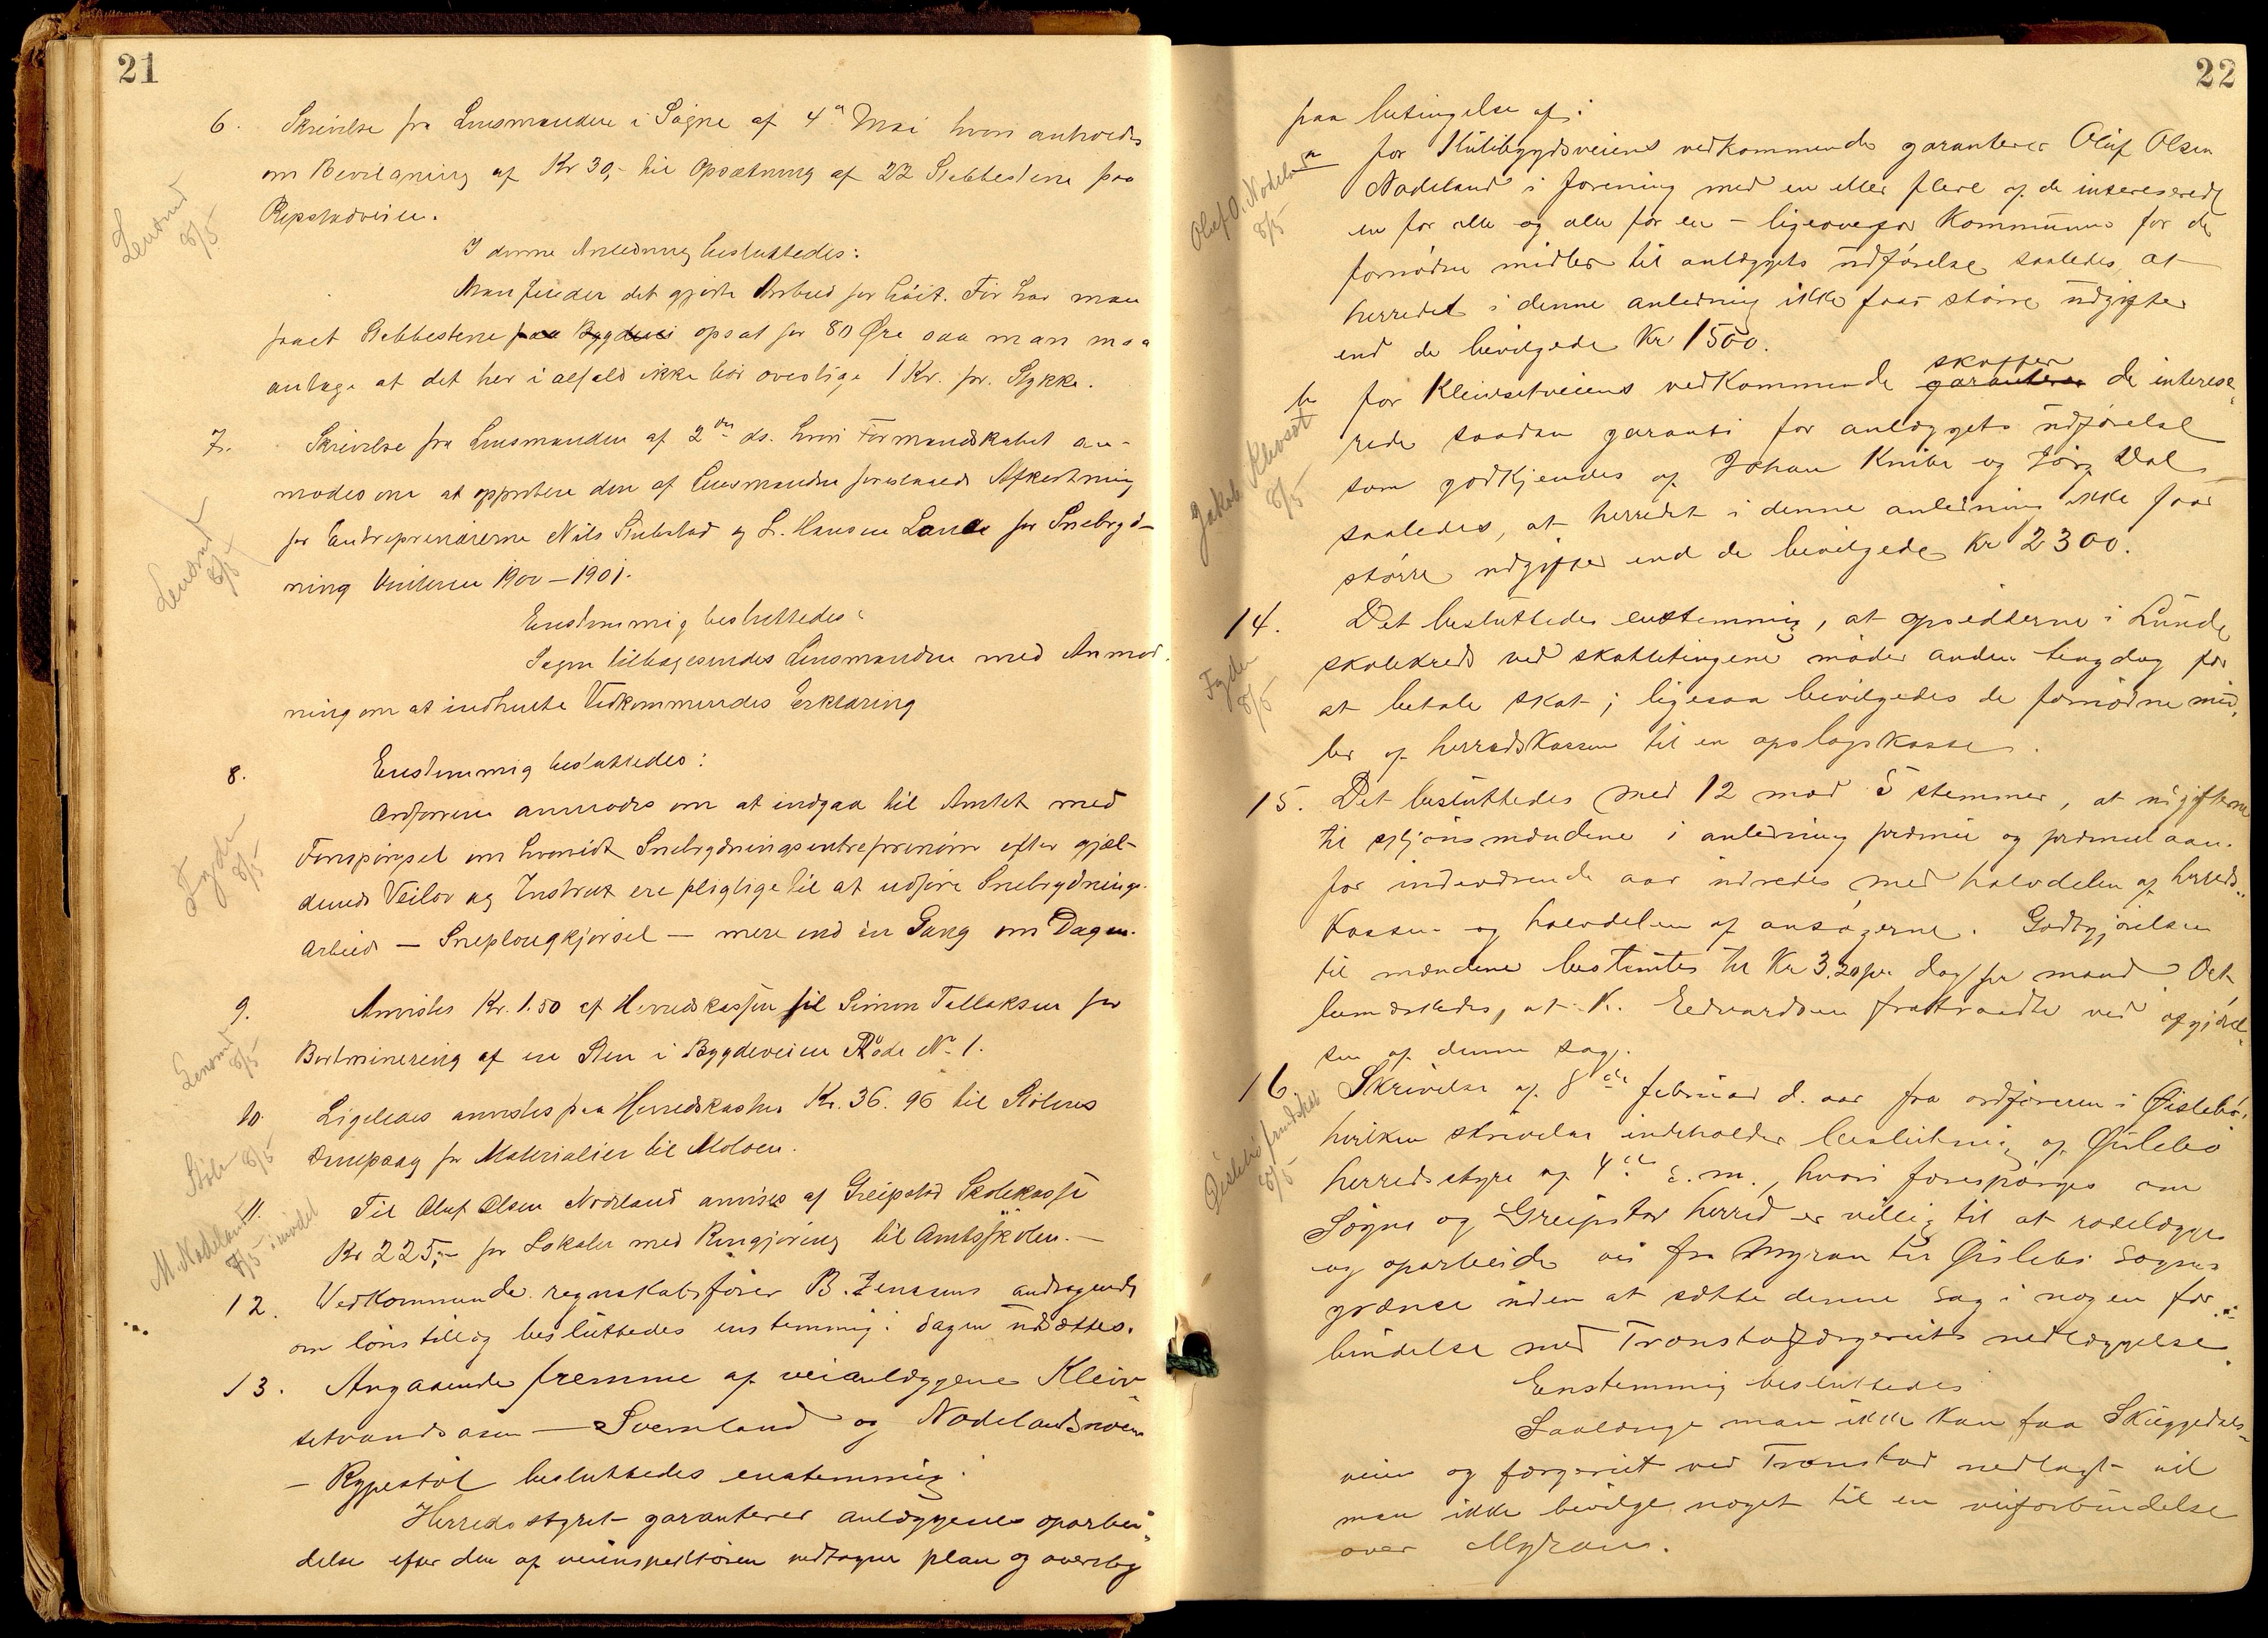 21
6. Skrivelse fra Lensmanden i Søgne af 4de Mai hvori anholdes
om Bevilgning af Kr 30,- til Opsætning af 22 Stabbestene paa
Repstadveien.
Lensmd
8/5
I denne Anledning besluttedes:
Man finder det gjorte Anbud for høit. Før har man
faaet Stabbestene paa Bygdevei opsat for 80 Øre saa man maa
antage at det her i alfald ikke bør overstige 1 Kr. pr. Stykke.
7. Skrivelse fra Lensmanden af 2den ds. hvori Formandskabet an-
modes om at approbere den af Lensmanden foreslaaede Afkortning
for Entreprenørerne Nils Stubstad og L. Hansen Lande for Snebryd-
ning Vinteren 1900-1901.
Lensmd
8/5
Enstemmig besluttedes:
Sagen tilbagesendes Lensmanden med Anmod-
ning om at indhente Vedkommendes Erklæring
8. Enstemmig besluttedes:
Ordføreren anmodes om at indgaa til Amtet med
Forespørgsel om hvorvidt Snebrydningsentreprenører efter gjæl-
dende Veilov og Instrux ere pligtige til at udføre Snebrydnings-
arbeid — Sneplougkjørsel — mere end én Gang om Dagen.
Fogden
8/5
9. Anvistes Kr. 1.50 af Herredskassen til Simon Tallaksen for
Bortminering af en Sten i Bygdeveien Rode No 1.
Lensmd
8/5
10. Ligeledes anvistes paa Herredskassen Kr. 36.96 til Stølens
for Materialier til Moloen.
Støle 8/5
11. Til Oluf Olsen Nodeland anvises af Greipstad Skolekasse
Kr 225,- for Lokaler med Rengjøring til Amtsskolen.-
M. Nodeland
7/5 imidet
12. Vedkommende regnskabsfører B. Jenssens andragende
om lønstillæg besluttedes enstemmig: Sagen udsættes.
13. Angaaende fremme af veianlæggene Kleiv-
setvandsåsen — Svernland og Nodelandsveien
— Rypestøl besluttedes enstemmig:
Herredsstyret garanterer anlæggenes oparbei-
delse efter den af veiinspektøren vedtagne plan og overslag
22
paa betingelse af:
a for Stulibygdsveiens vedkommende garanterer Oluf Olsen
Nodeland i forening med en eller flere af de intereserede
en for alle og alle for en — ligeoverfor Kommunen for de
fornødne midler til anlæggets udførelse saaledes, at
herredet i denne anledning ikke faar større udgifter
end de bevilgede Kr 1500.
Oluf O. Nodeland
8/5
b for Kleivsetveiens vedkommende garanterer skaffer de interese-
rede saadan garanti for anlæggets udførelse
som godkjendes af Johan Knibe og Jørg Dal
saaledes, at herredet i denne anledning ikke faar
større udgifter end de bevilgede Kr 2300.
Jakob Klevset
8/5
14. Det besluttedes enstemmig, at opsidderne i Lunde
skolekreds ved skattetingene møder anden tingdag for
at betale skat; ligesaa bevilgedes de fornødne mid-
ler af herredskassen til en opslagskasse.
Fogden
8/5
15. Det besluttedes med 12 mod 5 stemmer, at udgifterne
til skjønsmændene i anledning præmie
for indeværende aar udredes med halvdelen af herreds-
kassen og halvdelen af ansøgerne. Godtgjørelsen
til mændene bestemtes til Kr 3.20 pr. dag pr mand. Det
bemærkedes, at K. Edvardsen fratraadte ved afgjørel-
sen af denne sag.
16 Skrivelse af 8de februar d. aar fra ordføreren i Øislebø,
hvilken skrivelse indeholder beslutning af Øislebø
herredsstyre af 4de s.m., hvori forespørges om
Søgne og Greipstad herred er villig til at rodelægge
og oparbeide vei fra Myran til Øislebø sogne-
grænse uden at sætte denne sag i nogen for-
bindelse med Tronstadfærgeriets nedlæggelse.
Øislebø frmdskab
8/5
Enstemmig besluttedes
Saalænge man ikke kan faa Skuggedals-
veien og færgeriet ved Tronstad nedlagt vil
man ikke bevilge noget til en veiforbindelse
over Myran.